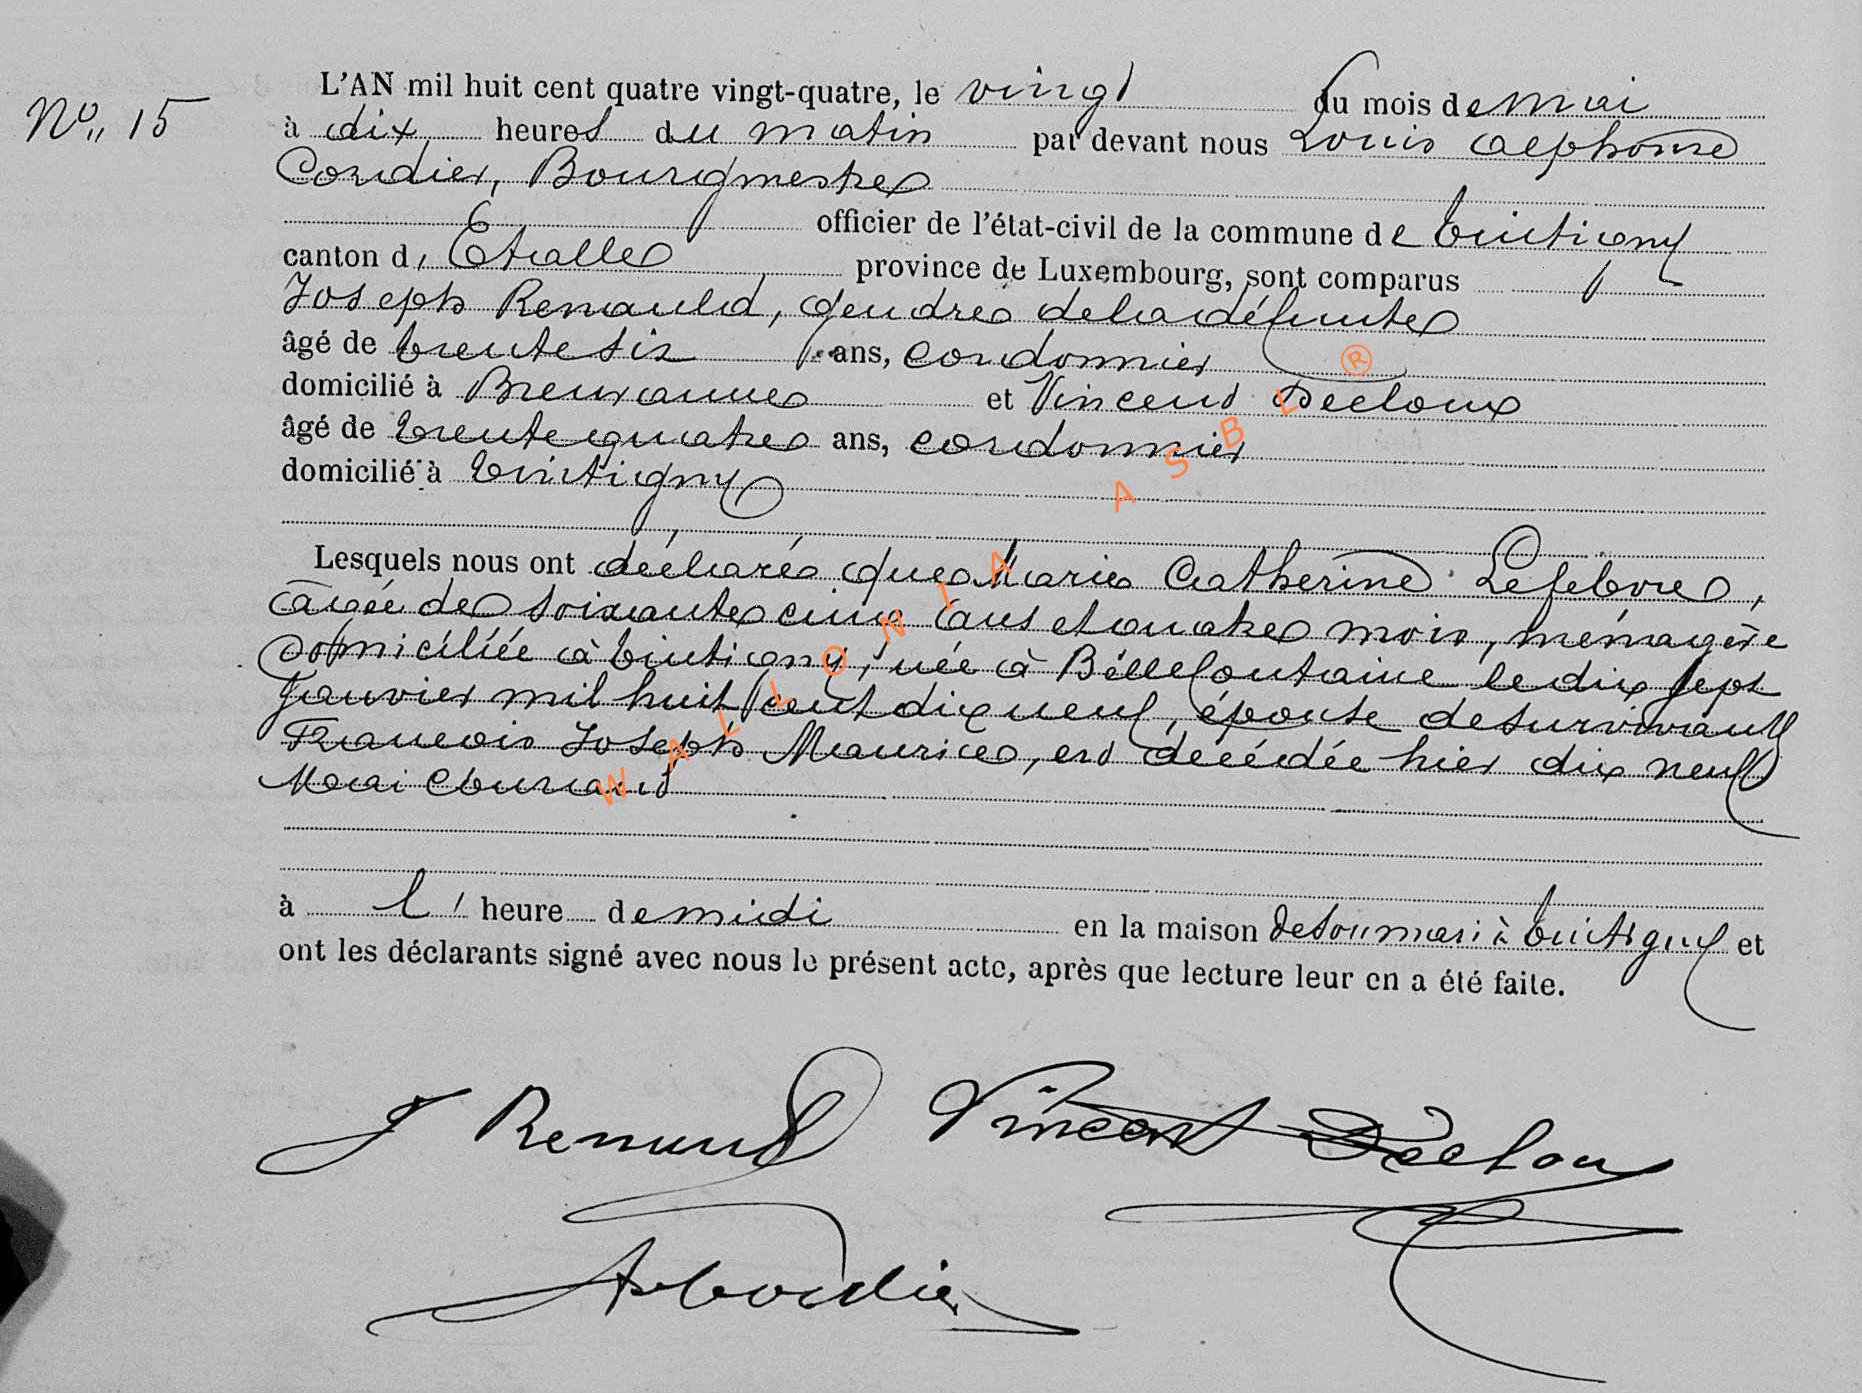 No 15
L'AN mil huit cent quatre vingt-quatre, le vingt du mois de mai
à dix heures du matin par devant nous Louis Alphonse
Cordier, Bourgmestre
officier de l'état-civil de la commune de Tintigny
canton d'Etalle province de Luxembourg, sont comparus
Joseph Renauld, gendre de la défunte
âgé de trente six ans, cordonnier
domicilié à Breuvanne et Vincend Decloux
âgé de trente quatre ans, cordonnier
domicilié à Tintigny
Lesquels nous ont déclaré que Marie Catherine Lefebvre,
âgée de soixante cinq ans et quatre mois, ménagère
domiciliée à Tintigny, née à Bellefontaine le dix sept
Janvier mil huit cent dix neuf, épouse de survivant
Francois Joseph Maurice, est décédée hier dix neuf
Mai courant
à l'heure de midi en la maison de son mari à Tintigny et
ont les déclarants signé avec nous le présent acte, après que lecture leur en a été faite.
J Renauld Vincent Décloux
Cordier
WALLONIA ASBL ®